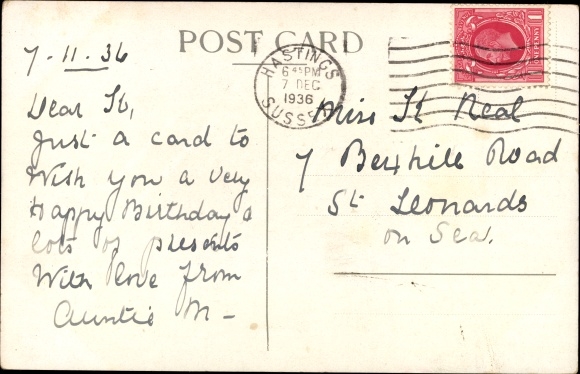 POST CARD
7-11-36
Dear
Just a card to
Wish you a very
Happy Birthday &
lots of presents
With love from
Auntie M-
HASTINGS
6 45 PM
7 DEC
1936
SUSSEX
ONE PENNY
Miss Neal
7 Bexhill Road
St Leonards
on Sea.